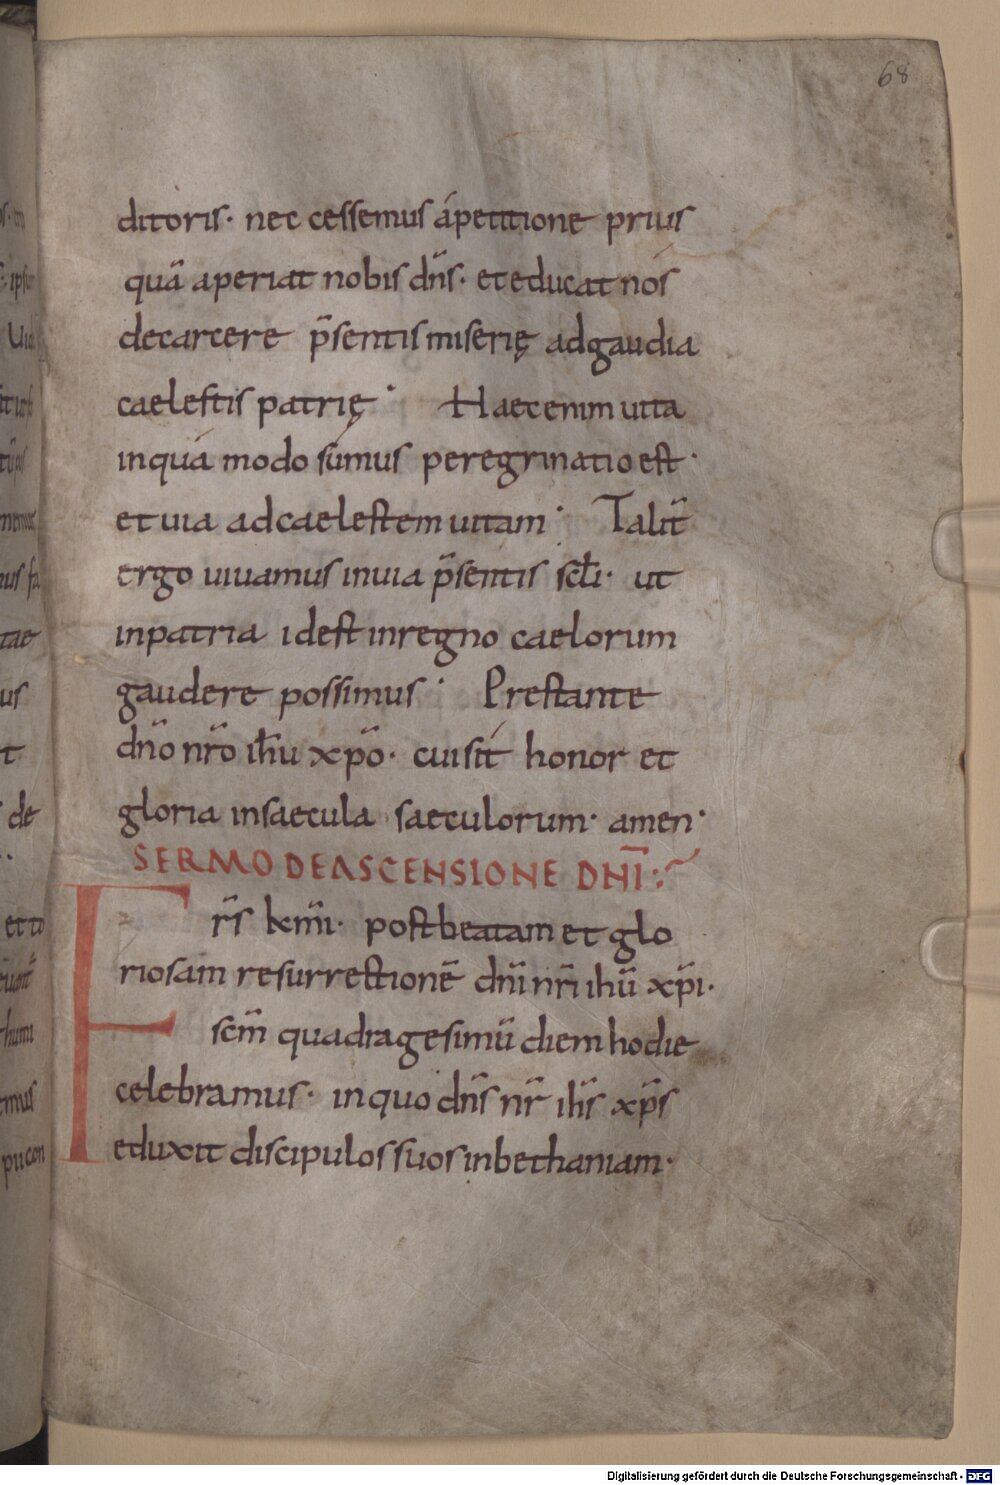 68
ditoris· nec cessemus ápetitione prius
quā aperiat nobis dn̄s· et educat nos
decarcere p̄sentis miserię adgaudia
caelestis patrię· Haec enim uita
inqua modo sumus peregrinatio est·
et uia adcaelestem uitam· Talit̄
ergo uiuamus inuia p̄sentis scl̄i· ut
inpatria idest inregno caelorum
gaudere possimus· Prestante
dn̄o nr̄o ih̄u xp̄o· cui sit honor et
gloria insaecula saeculorum· amen·
SERMO DEASCENSIONE DN̄I:
Fr̄s km̄i· post beatam et glo
riosam resurrectionē dn̄i nr̄i ihū xp̄i·
scm̄ quadragesimū diem hodie
celebramus· in quo dn̄s nr̄ ih̄s xp̄s
eduxit discipulos suos inbethaniam·
Digitalisierung gefördert durch die Deutsche Forschungsgemeinschaft - DFG